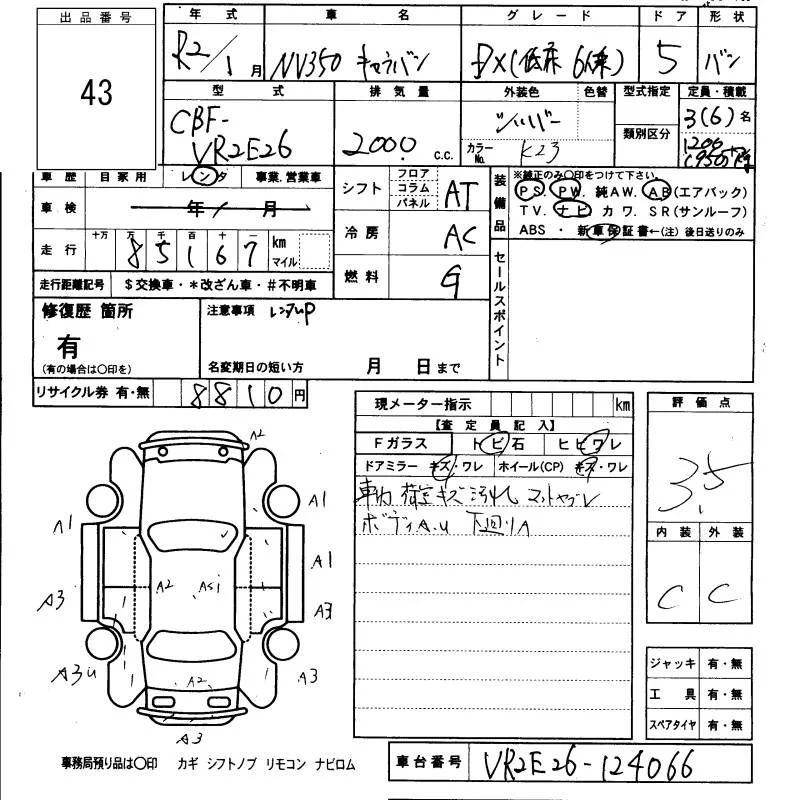 出品番号
43
年 式
R2/1月
車 名
NV350 キャラバン
グ レ ー ド
DX(低床 6人乗)
ド ア
5
形 状
バン
型 式
CBF-
VR2E26
排 気 量
2000 c.c.
外装色
シルバー
色替
カラーNo. K23
型式指定
類別区分
定員・積載
3(6)名
1200
(950)kg
車 歴 自家用 レンタ 事業.営業車
車 検 年 月
走 行 十万 万 千 百 十 一
8 5 1 6 7 km マイル
走行距離記号 $交換車・*改ざん車・#不明車
シフト フロア コラム パネル AT
冷 房 AC
燃 料 G
装備品
※純正のみ○印をつけて下さい。
PS. PW. 純AW. AB(エアバック)
TV. ナビ カ ワ. SR(サンルーフ)
ABS ・ 新車保証書←(注)後日送りのみ
セールスポイント
修復歴 箇所
有
(有の場合は○印を)
注意事項 レンタUP
名変期日の短い方 月 日まで
リサイクル券 有・無 8 8 1 0 円
現メーター指示 km
【査 定 員 記 入】
Fガラス ト ビ 石 ヒ ビ ワ レ
ドアミラー キズ・ワレ ホイール(CP) キズ・ワレ
車内 荷室キズ 汚れ マットヤブレ
ボディA.U 下回りA
評 価 点
3.5
内 装 外 装
C C
ジャッキ 有・無
工 具 有・無
スペアタイヤ 有・無
A2
A1
A1
A1
A3
A2
A3
A3U
A3
A2
A3
事務局預り品は○印 カギ シフトノブ リモコン ナビロム
車台番号 VR2E26-124066